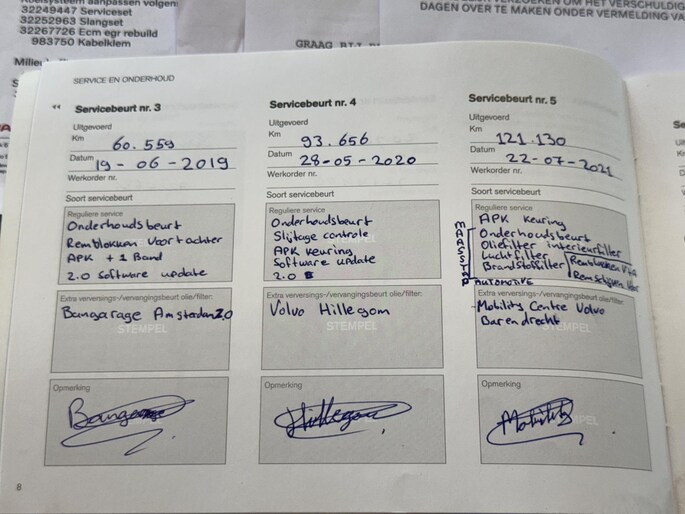 32249447 Serviceset
32252963 Slangset
32267726 Ecm egr rebuild
983750 Kabelklem
GRAAG
DAGEN OVER TE MAKEN ONDER VERMELDING VA
SERVICE EN ONDERHOUD
Servicebeurt nr. 3
Uitgevoerd
Km 60.559
Datum 19-06-2019
Werkorder nr.
Soort servicebeurt
Reguliere service
Onderhoudsbeurt
Remblokken Voor+achter
APK + 1 Band
2.0 Software update
Extra verversings-/vervangingsbeurt olie/filter:
Bangarage Amsterdam 2.0
STEMPEL
Opmerking
Servicebeurt nr. 4
Uitgevoerd
Km 93.656
Datum 28-05-2020
Werkorder nr.
Soort servicebeurt
Reguliere service
Onderhoudsbeurt
Slijtage controle
APK keuring
Software update
2.0
Extra verversings-/vervangingsbeurt olie/filter:
Volvo Hillegom
STEMPEL
Opmerking
Hillegom
Servicebeurt nr. 5
Uitgevoerd
Km 121.130
Datum 22-07-2021
Werkorder nr.
Soort servicebeurt
Reguliere service
APK Keuring
Onderhoudsbeurt
Oliefilter interieurfilter
Luchtfilter Remblokken
Brandstoffilter Remschijven
AUTOMOTIVE
Extra verversings-/vervangingsbeurt olie/filter:
Mobility Centre Volvo
Barendrecht
STEMPEL
Opmerking
Mobility
STEMPEL
8